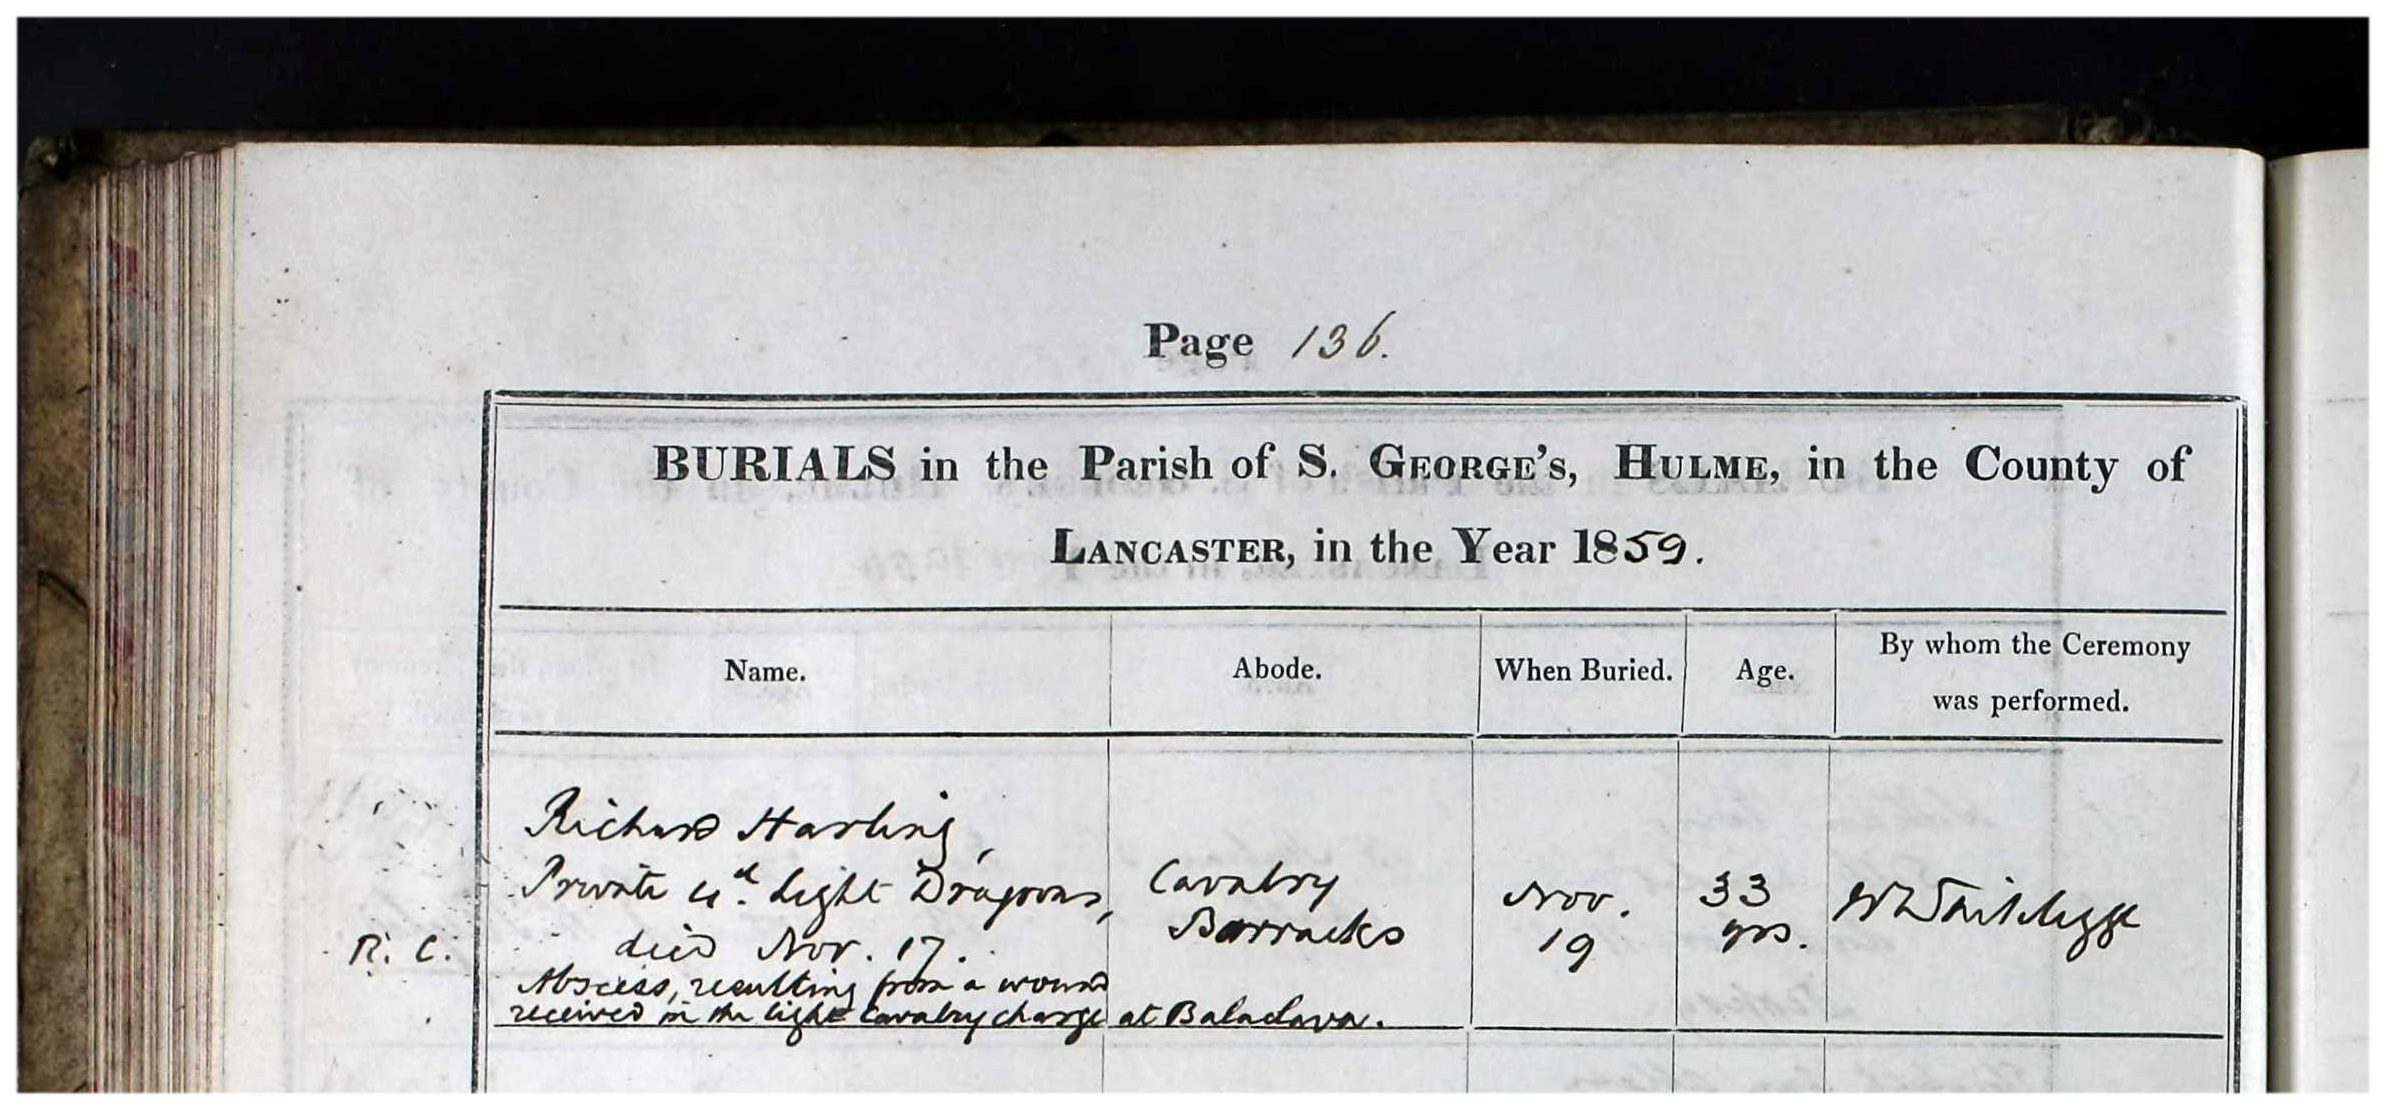 Page 136.
BURIALS in the Parish of S. GEORGE'S, HULME, in the County of
LANCASTER, in the Year 1859.
Name.
Abode.
When Buried.
Age.
By whom the Ceremony
was performed.
R. C.
Richard Harling,
Private 4th Light Dragoons,
died Nov. 17.
Abscess, resulting from a wound
received in the light Cavalry charge at Balaclava.
Cavalry
Barracks
Nov.
19
33
yrs.